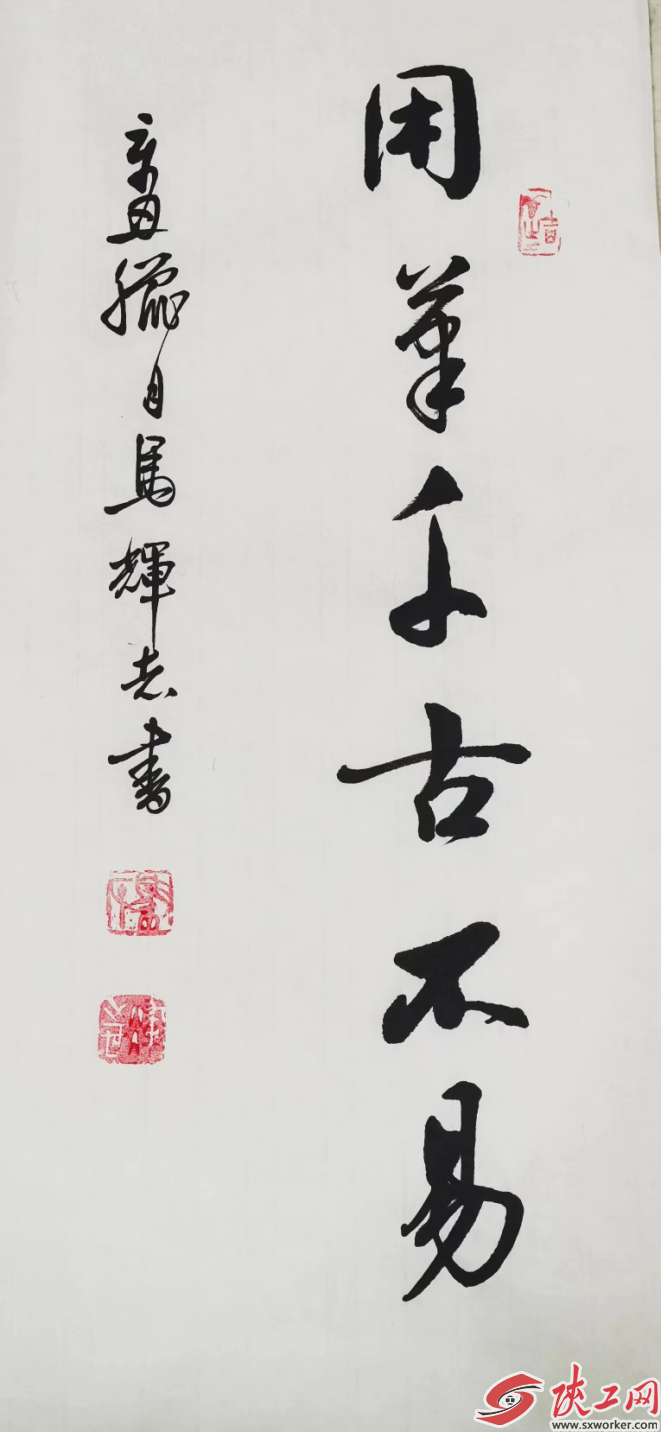 用筆千古不易
辛丑臘月馬輝志書
陕工网
www.sxworker.com